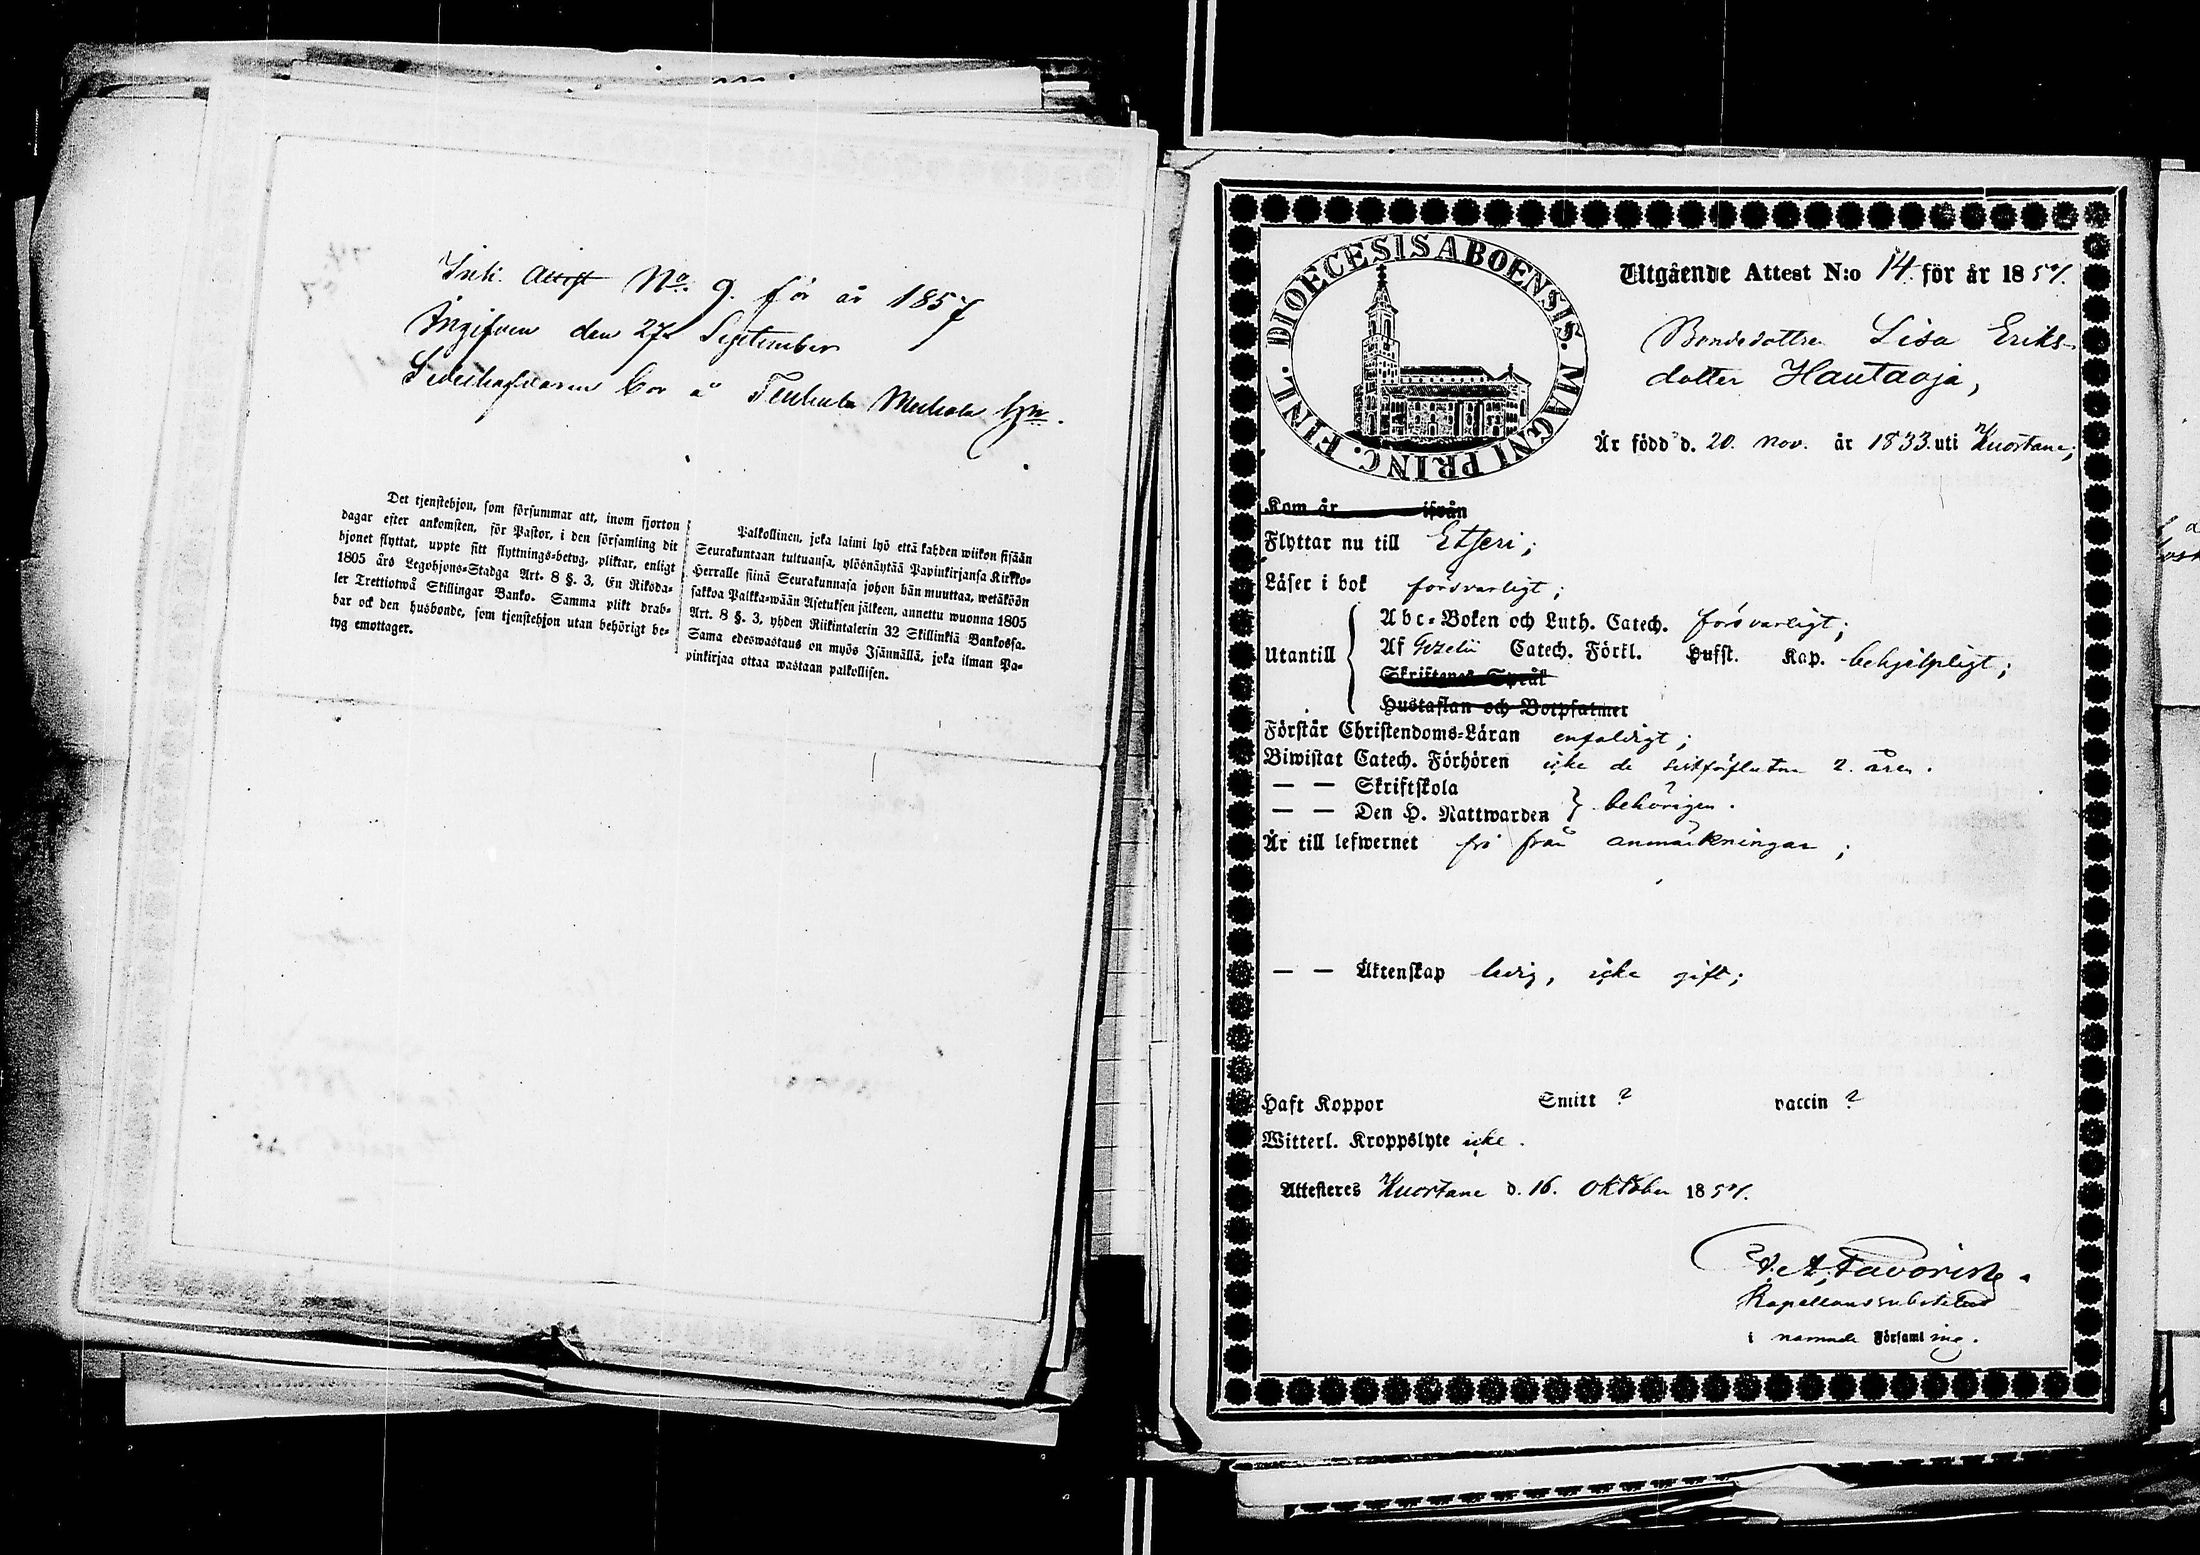 Ink. Attest No. 9. för år 1857
Angifven den 27 September
bor å
Det tjenstehjon, som försummar att, inom fjorton
dagar efter ankomsten, för Pastor, i den församling dit
hjonet flyttat, uppte sitt flyttnings-betyg, pliktar, enligt
1805 års Legohjons-Stadga Art. 8 §. 3, En Riksda-
ler Trettiotwå Skillingar Banko. Samma plikt drab-
bar ock den husbonde, som tjenstehjon utan behörigt be-
tyg emottager.
Palkollinen, joka laimi lyö että kahden wiikon sisään
Seurakuntaan tultuansa, ylösnäytää Papinkirjansa Kirkko-
Herralle siinä Seurakunnasa johon hän muuttaa, wetäköön
sakkoa Palkka-wään Asetuksen jälkeen, annettu wuonna 1805
Art. 8 §. 3, yhden Riikintalerin 32 Skillinkiä Bankossa.
Sama edeswastaus on myös Isännällä, joka ilman Pa-
pinkirjaa ottaa wastaan palkollisen.
DIOECESIS ABOENSIS. MAGNI PRINC. FINL.
Utgående Attest N:o 14. för år 1857.
Bondedottren Lisa Eriks-
dotter Hautaoja,
Är född d. 20. Nov. år 1833. uti Kuortane,
Kom år ifrån
Flyttar nu till Etseri;
Läser i bok försvarligt;
Abc-Boken och Luth. Catech. försvarligt;
Utantill Af Gezelii Catech. Förkl. Hufst. Kap. behjelpligt;
Skriftenes Språk
Hustaflan och Botpsalmer
Förstår Christendoms-Läran enfaldigt;
Biwistat Catech. Förhören icke de sistförflutna 2. åren.
— — Skriftskola
— — Den H. Nattwarden } behörigen.
Är till lefwernet fri från anmärkningar;
— — Äktenskap ledig, icke gift;
Haft Koppor Smitt ? vaccin ?
Witterl. Kroppslyte icke.
Attesteres Kuortane d. 16. Oktober 1857.
Kapellanssubstitut
i nämnde Församling.